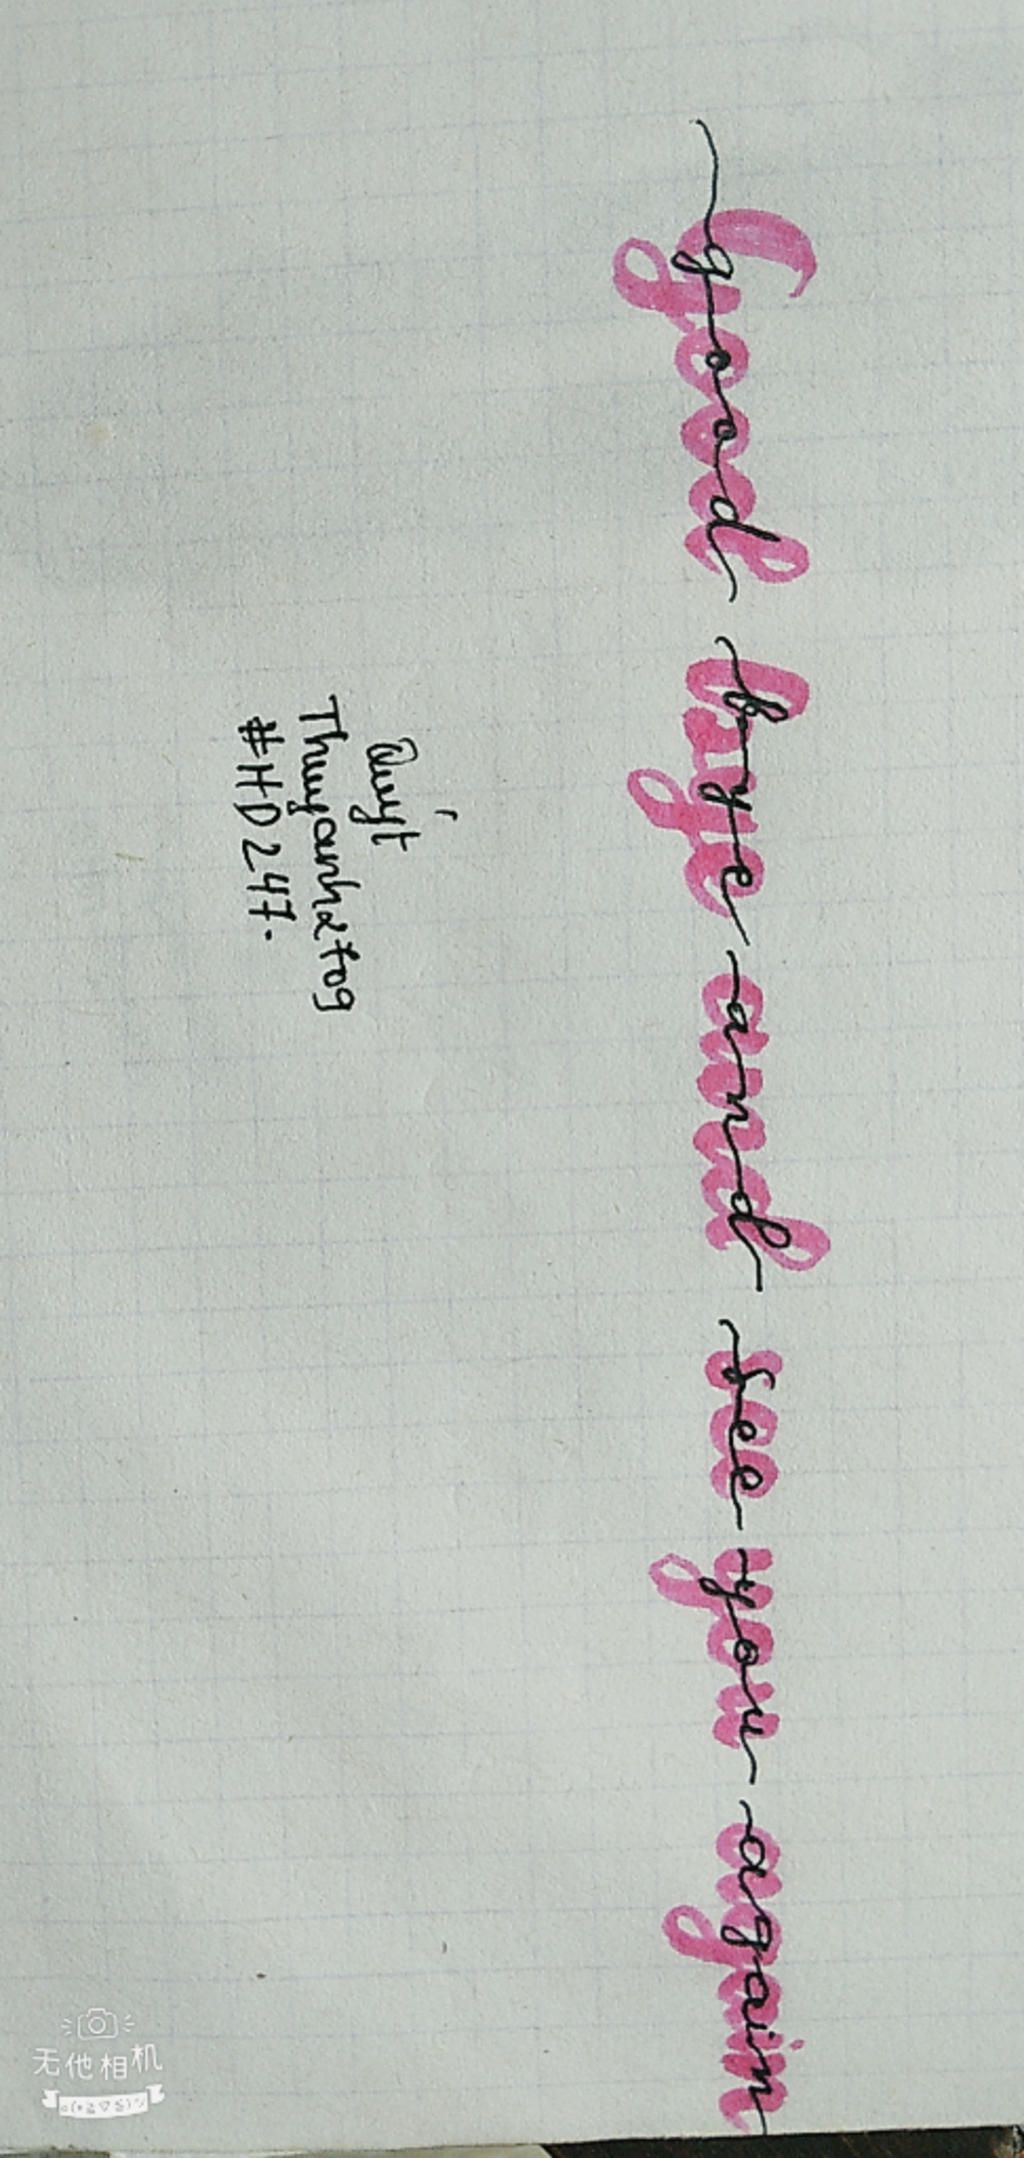 good bye and see you again
Quýt
Thuyanh2709
#HD247.
无他相机